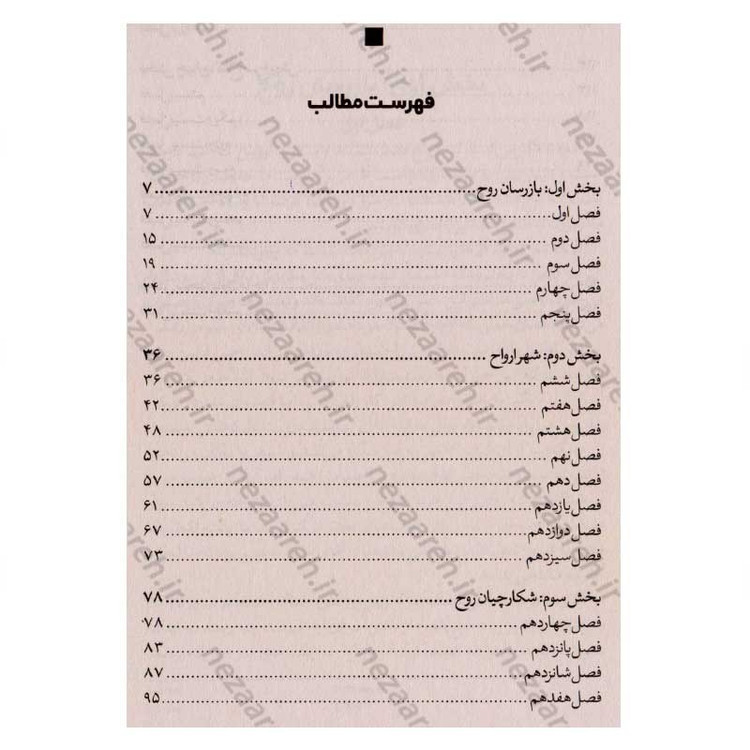 فهرست مطالب
بخش اول: بازرسان روح ........ ۷
فصل اول ........ ۷
فصل دوم ........ ۱۵
فصل سوم ........ ۱۹
فصل چهارم ........ ۲۴
فصل پنجم ........ ۳۱
بخش دوم: شهر ارواح ........ ۳۶
فصل ششم ........ ۳۶
فصل هفتم ........ ۴۲
فصل هشتم ........ ۴۸
فصل نهم ........ ۵۲
فصل دهم ........ ۵۷
فصل یازدهم ........ ۶۱
فصل دوازدهم ........ ۶۷
فصل سیزدهم ........ ۷۳
بخش سوم: شکارچیان روح ........ ۷۸
فصل چهاردهم ........ ۷۸
فصل پانزدهم ........ ۸۳
فصل شانزدهم ........ ۸۷
فصل هفدهم ........ ۹۵
nezaareh.ir